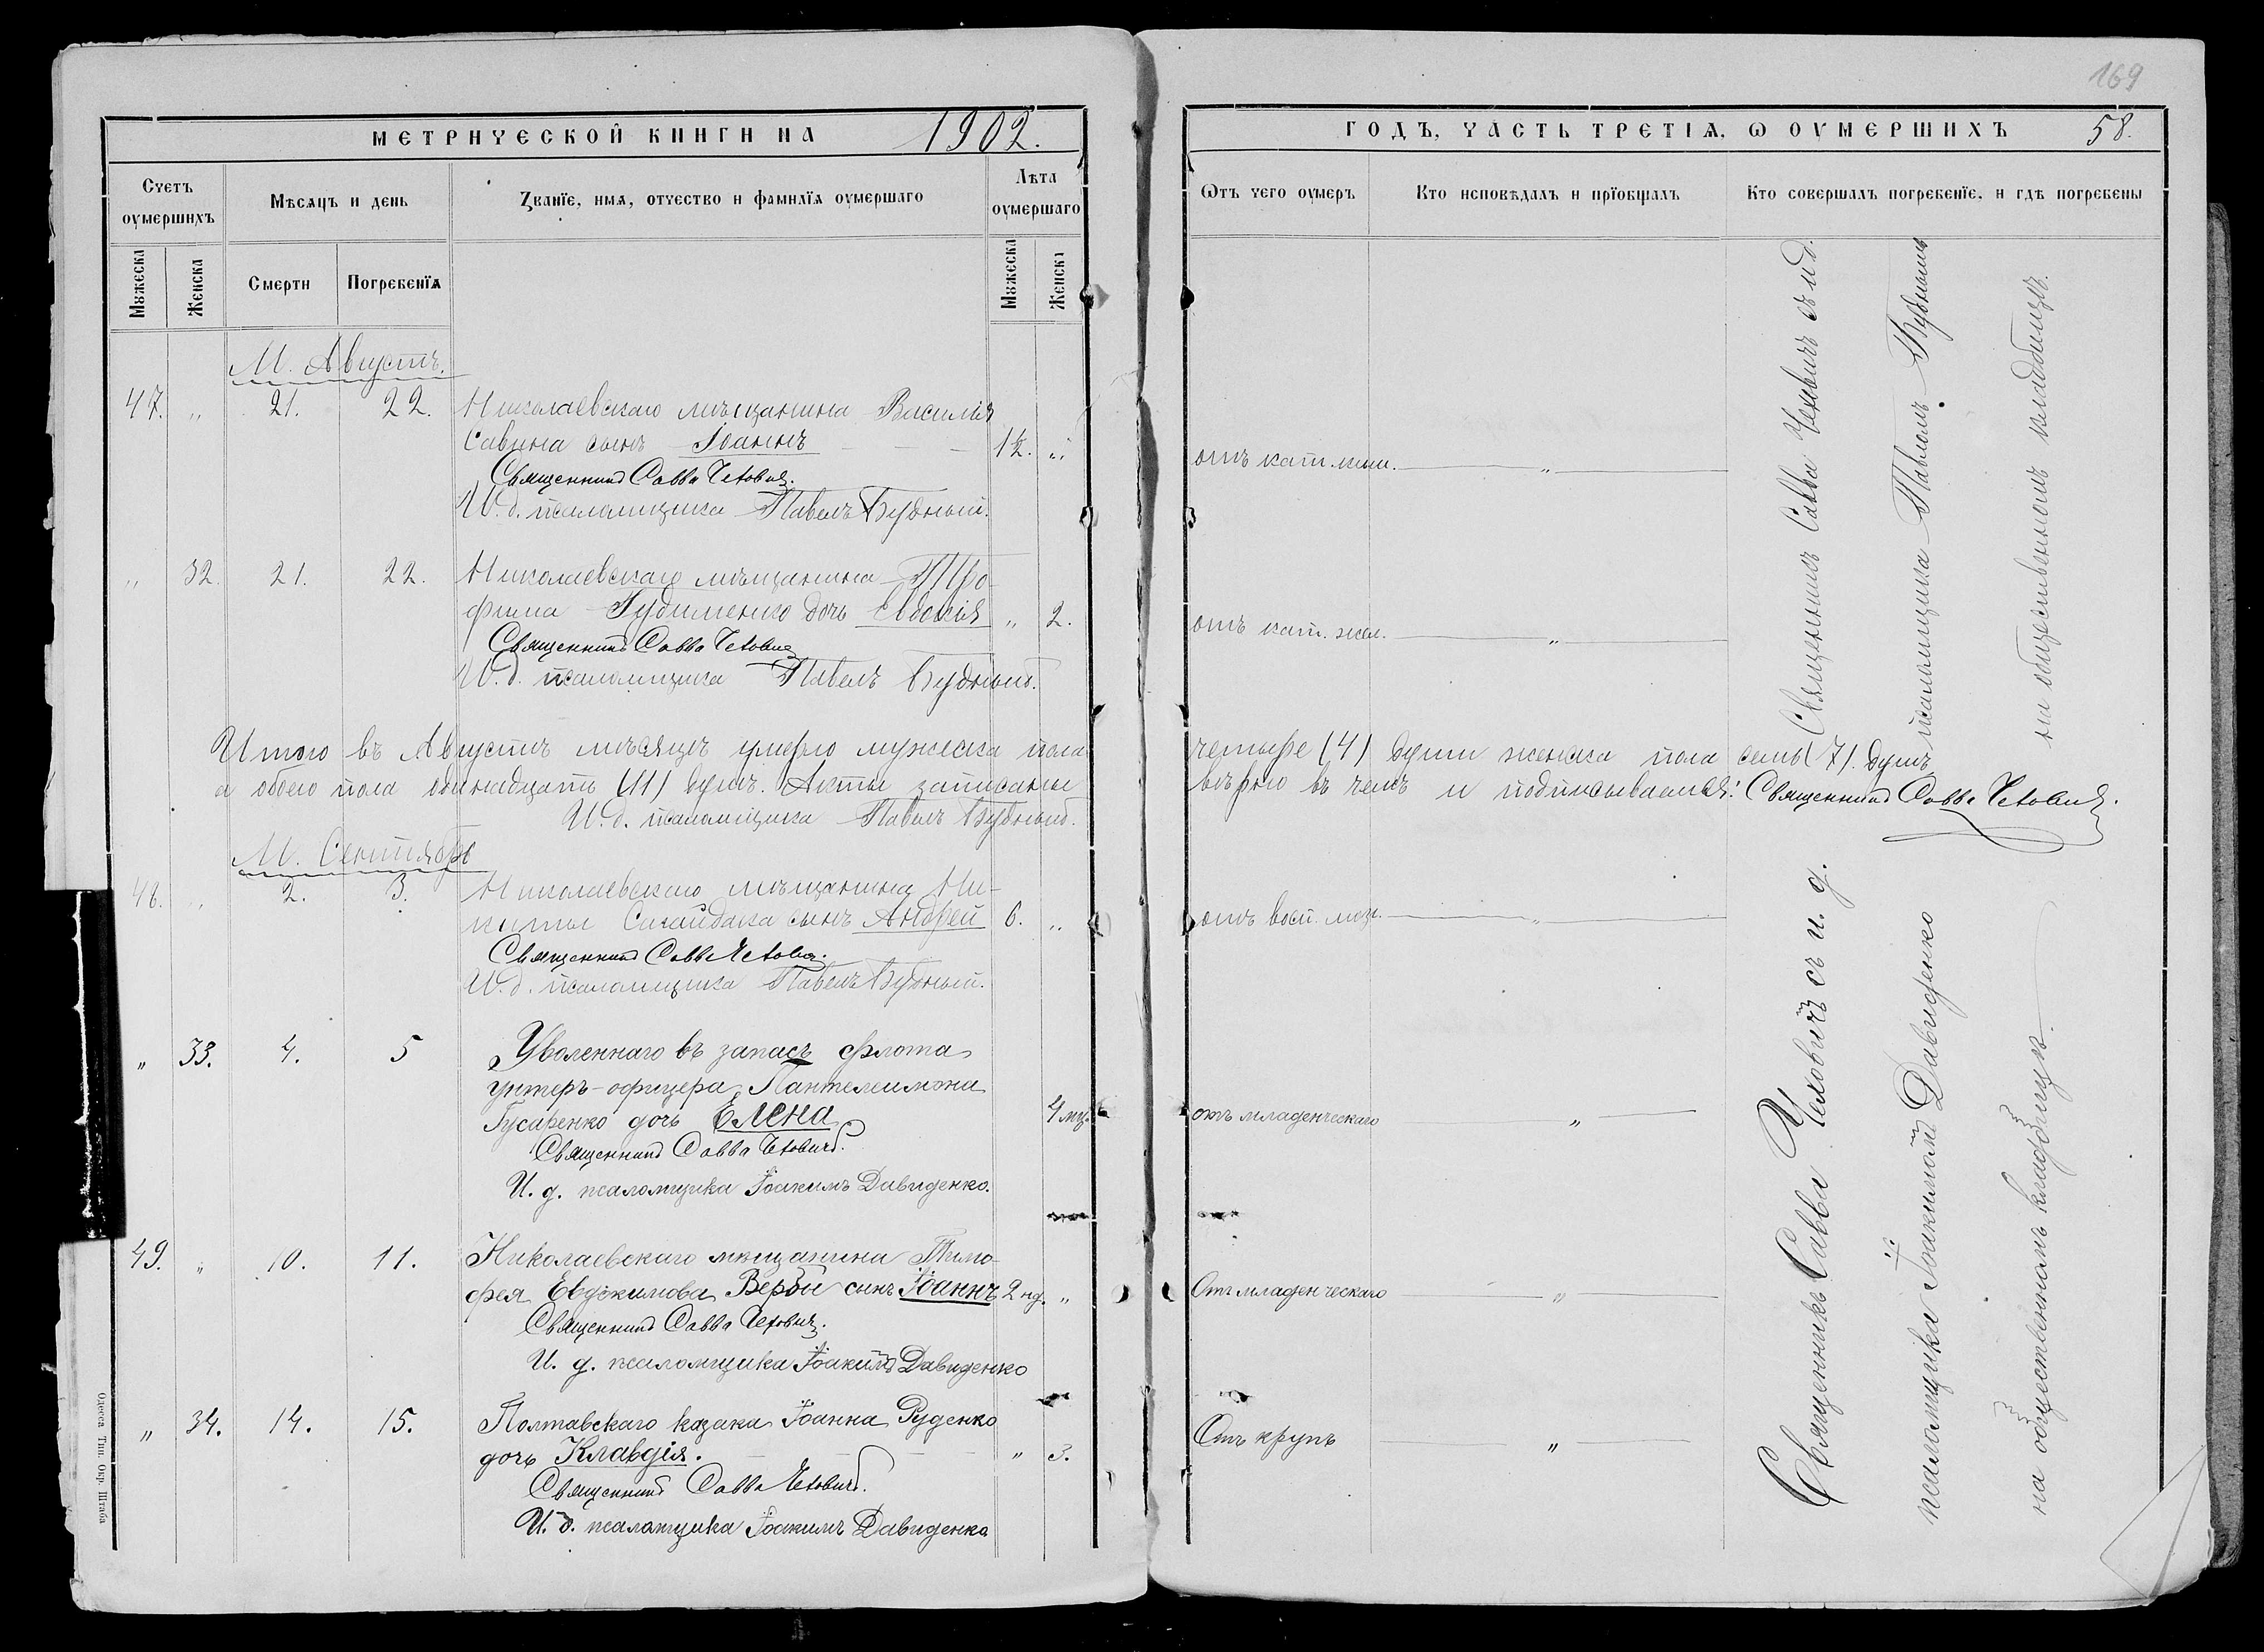 169
МЕТРИЧЕСКОЙ КНИГИ НА 1902.
ГОДЪ, ЧАСТЬ ТРЕТІѦ, Ѡ ОУМЕРШИХЪ 58.
Счетъ оумершихъ
Мѣсяцъ и день
Званїе, имѧ, отчество и фамилїѧ оумершаго
Лѣта оумершаго
Ѿтъ чего оумеръ
Кто исповѣдалъ и прїобщалъ
Кто совершалъ погребенїе, и гдѣ погребены
Мꙋжеска
Женска
Смерти
Погребенїѧ
Мꙋжеска
Женска
М. Августъ.
47. " 21. 22. Николаевскаго мѣщанина Василія
Савина сынъ Іоаннъ 1½. "
отъ кат. киш. "
Священникъ Савва Чеховичъ.
И. д. псаломщика Павелъ Будный.
" 32. 21. 22. Николаевскаго мѣщанина Тро-
фима Гудименко дочь Евдокія " 2.
отъ кат. жел. "
Священникъ Савва Чеховичъ
И. д. псаломщика Павелъ Будный.
Священникъ Савва Чеховичъ съ и. д.
псаломщика Павломъ Буднымъ
на общественномъ кладбищѣ.
Итого въ Августѣ мѣсяцѣ умерло мужеска пола четыре (4) души женска пола семь (7) душъ
а обоего пола одинадцать (11) душъ. Акты записаны вѣрно въ чемъ и подписываемся: Священникъ Савва Чеховичъ.
И. д. псаломщика Павелъ Будный.
М. Сентябрь
48. " 2. 3. Николаевскаго мѣщанина Ни-
киты Сагайдака сынъ Андрей 6. "
отъ восп. мозг. "
Священникъ Савва Чеховичъ.
И. д. псаломщика Павелъ Будный.
" 33. 4. 5 Уволеннаго въ запасъ флота
унтеръ-офицера Пантелеимона
Гусаренко дочь Елена 4 мц.
отъ младенческаго "
Священникъ Савва Чеховичъ.
И. д. псаломщика Іоакимъ Давиденко.
49. " 10. 11. Николаевскаго мѣщанина Тимо-
фея Евдокимова Вербы сынъ Іоаннъ 2 нд. "
Отъ младенческаго "
Священникъ Савва Чеховичъ.
И. д. псаломщика Іоакимъ Давиденко
" 34. 14. 15. Полтавскаго казака Іоанна Руденко
дочь Клавдія. " 3.
Отъ крупъ "
Священникъ Савва Чеховичъ.
И. д. псаломщика Іоакимъ Давиденко
Священникъ Савва Чеховичъ съ и. д.
псаломщика Іоакимомъ Давиденко
на общественномъ кладбищѣ.
Одесса Тип. Окр. Штаба